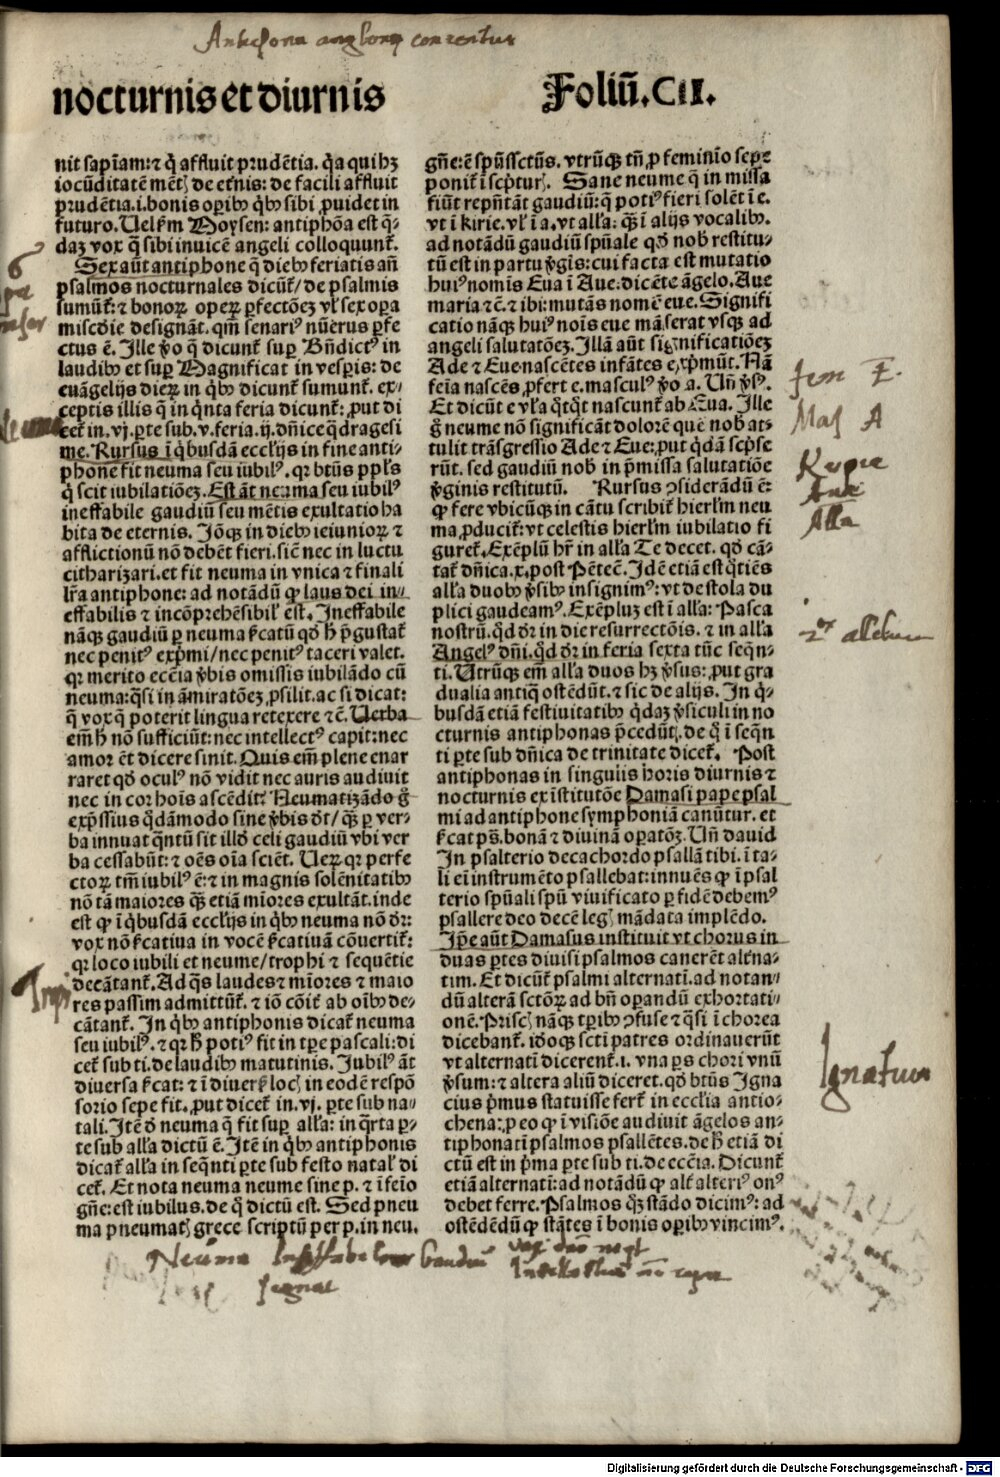 Antiphona anglorum concentus
nocturnis et diurnis
Foliū. CII.
nit sapīam: ⁊ q̄ affluit prudētia. q̄a qui hꝫ
iocūditatē mēt de et̄nis: de facili affluit
prudētia. i. bonis opib q̄b sibi ꝓuidet in
futuro. Uel ẜm Moysen: antiphōa est q̄-
daꝫ vox q̄ sibi inuicē angeli colloquunt.
Sex aūt antiphone q̄ dieb feriatis añ
psalmos nocturnales dicūt / de psalmis
sumūt: ⁊ bonoꝝ opeꝝ ꝑfectōeꝫ vl sex oꝑa
miscd̄ie designāt. qm̄ senariꝰ nūerus ꝑfe
ctus ē. Ille ꝟo q̄ dicunt sup Bn̄dictꝰ in
laudib et sup Magnificat in vesꝑis: de
euāgelijs dieꝝ in q̄b dicunt sumunt. ex-
ceptis illis q̄ in q̄nta feria dicunt: ꝓut di
cet in. vj. ꝑte sub. v. feria. ij. dn̄ice q̄dragesi
me. Rursus ī q̄busdā eccl̄ijs in fine anti-
phone fit neuma seu iubilꝰ. qꝛ btūs ppl̄s
q̄ scit iubilatiōeꝫ. Est āt neuma seu iubilꝰ
ineffabile gaudiū seu mētis exultatio ha
bita de eternis. Iō in dieb ieiunioꝝ ⁊
afflictionū nō debēt fieri. sic nec in luctu
citharizari. et fit neuma in vnica ⁊ finali
lr̄a antiphone: ad notādū ꝙ laus dei in-
effabilis ⁊ incōprehēsibil est. Ineffabile
nāqꝫ gaudiū ꝑ neuma ẜcatū qd̄ h p̄gustat
nec penitꝰ exp̄mi / nec penitꝰ taceri valet.
qꝛ merito ecc̄ia ꝟbis omissis iubilādo cū
neuma: q̄si in āmiratōeꝫ ꝓsilit. ac si dicat:
q̄ vox q̄ poterit lingua retexere ⁊c̄. Uerba
em̄ h nō sufficiūt: nec intellectꝰ capit: nec
amor ēt dicere sinit. Quis em̄ plene enar
raret qd̄ oculꝰ nō vidit nec auris audiuit
nec in cor hoīs ascēdit? Neumatizādo g̊
exp̄ssius q̄dāmodo sine ꝟbis ōt / qꝫ ꝑ ver-
ba innuat q̄ntū sit illd̄ celi gaudiū vbi ver
ba cessabūt: ⁊ oēs oīa sciēt. Ueꝝ qꝛ perfe
ctoꝝ tm̄ iubilꝰ ē: ⁊ in magnis solēnitatib
nō tā maiores qꝫ etiā miores exultāt. inde
est ꝙ ī q̄busdā eccl̄ijs in q̄b neuma nō dr̄:
vox nō ẜcatiua in vocē ẜcatiuā cōuertit:
qꝛ loco iubili et neume / trophi ⁊ sequētie
decātant. Ad q̄s laudes ⁊ mīores ⁊ maio
res passim admittūt. ⁊ iō cōit ab oīb de-
cātant. In q̄b antiphonis dicat neuma
seu iubilꝰ. ⁊ qꝛ h potiꝰ fit in tꝑe pascali: di
cet sub ti. de laudib matutinis. Iubilꝰ āt
diuersa ẜcat: ⁊ ī diuers loc in eodē respō
sorio sepe fit. ꝓut dicet in. vj. ꝑte sub na-
tali. Itē d̄ neuma q̄ fit sup all̄a: in q̄rta ꝑ-
te sub all̄a dictū ē. Itē in q̄b antiphonis
dicat all̄a in seq̄nti ꝑte sub festo natal di
cet. Et nota neuma neume sine p. ⁊ ī fēio
gn̄e: est iubilus. de q̄ dictū est. Sed pneu
ma pneumat grece scriptū per p. in neu.
gn̄e: ē spūssctūs. vtrūqꝫ tn̄ ꝓ feminīo sepe
ponit ī scp̄tur. Sane neume q̄ in missa
fiūt rep̄ntāt gaudiū: q̄ potiꝰ fieri solēt ī e.
vt ī kirie. vl ī a. vt all̄a: qꝫ ī alijs vocalib.
ad notādū gaudiū spūale qd̄ nob restitu-
tū est in partu ꝟgīs: cui facta est mutatio
huiꝰ nomīs Eua ī Aue: dicēte āgelo. Aue
maria ⁊c̄. ⁊ ibi: mutās nomē eue. Signifi
catio nāqꝫ huiꝰ noīs eue māserat vsqꝫ ad
angeli salutatōeꝫ. Illā aūt significatiōeꝫ
Ade ⁊ Eue nascētes infātes exp̄mūt. Nā
feīa nascēs ꝓfert e. masculꝰ ꝟo a. Un̄ ꝟsꝰ.
Et dicūt e vl̄a q̄tq̄t nascunt ab Eua. Ille
g̊ neume nō significāt dolorē quē nob at-
tulit trāsgressio Ade ⁊ Eue: ꝓut q̄dā scp̄se
rūt. sed gaudiū nob in p̄missa salutatiōe
ꝟginis restitutū. Rursus ꝯsiderādū ē:
ꝙ fere vbicūqꝫ in cātu scribit hierl̄m neu
ma ꝓducit: vt celestis hierl̄m iubilatio fi
guret. Exēplū hr̄ in all̄a Te decet. qd̄ cā-
tat dn̄ica. x. post Pētec̄. Idē etiā est q̄tiēs
all̄a duob ꝟsib insignimꝰ: vt de stola du
plici gaudeamꝰ. Exēpluꝫ est ī all̄a: Pasca
nostrū. qd̄ dr̄ in die resurrectōis. ⁊ in all̄a
Angelꝰ dn̄i. qd̄ dr̄ in feria sexta tūc seq̄n-
ti. Utrūqꝫ em̄ all̄a duos hꝫ ꝟsus: ꝓut gra
dualia antiq̄ ostēdūt. ⁊ sic de alijs. In q̄-
busdā etiā festiuitatib q̄daꝫ ꝟsiculi in no
cturnis antiphonas p̄cedūt. de q̄ ī seq̄n
ti ꝑte sub dn̄ica de trinitate dicet. Post
antiphonas in singulis horis diurnis ⁊
nocturnis ex īstitutōe Damasi pape psal
mi ad antiphone symphoniā canūtur. et
ẜcat ps̄. bonā ⁊ diuinā oꝑatōꝫ. Un̄ dauid
In psalterio decachordo psallā tibi. ī ta-
li em̄ instrumēto psallebat: innuēs ꝙ ī psal
terio spūali spū viuificato ꝑ fidē debemꝰ
psallere deo decē leg mādata implēdo.
Ip̄e aūt Damasus instituit vt chorus in
duas ꝑtes diuisi psalmos canerēt alt̄na-
tim. Et dicūt psalmi alternatī. ad notan-
dū alterā sctōꝝ ad bn̄ oꝑandū exhortati-
onē. Prisc nāqꝫ tꝑib ꝯfuse ⁊ q̄si ī chorea
dicebant. idoqꝫ sctī patres ordinauerūt
vt alternatī dicerent. ı. vna ꝑs chori vnū
ꝟsum: ⁊ altera aliū diceret. qd̄ btūs Igna
cius p̄mus statuisse fert in eccl̄ia antio-
chena: ꝑ eo ꝙ ī visiōe audiuit āgelos an-
tiphonatī psalmos psallētes. de h etiā di
ctū est in p̄ma ꝑte sub ti. de ecc̄ia. Dicunt
etiā alternatī: ad notādū ꝙ alt alteriꝰ onꝰ
debet ferre. Psalmos qꝫ stādo dicimꝰ: ad
ostēdēdū ꝙ stātes ī bonis oꝑib vincimꝰ.
6
Neuma
Tropi
fem E.
Mas A
Kyrie
Aue
Alla
2ex alleluia
Ignatius
Neuma Ineffabile gaudiū